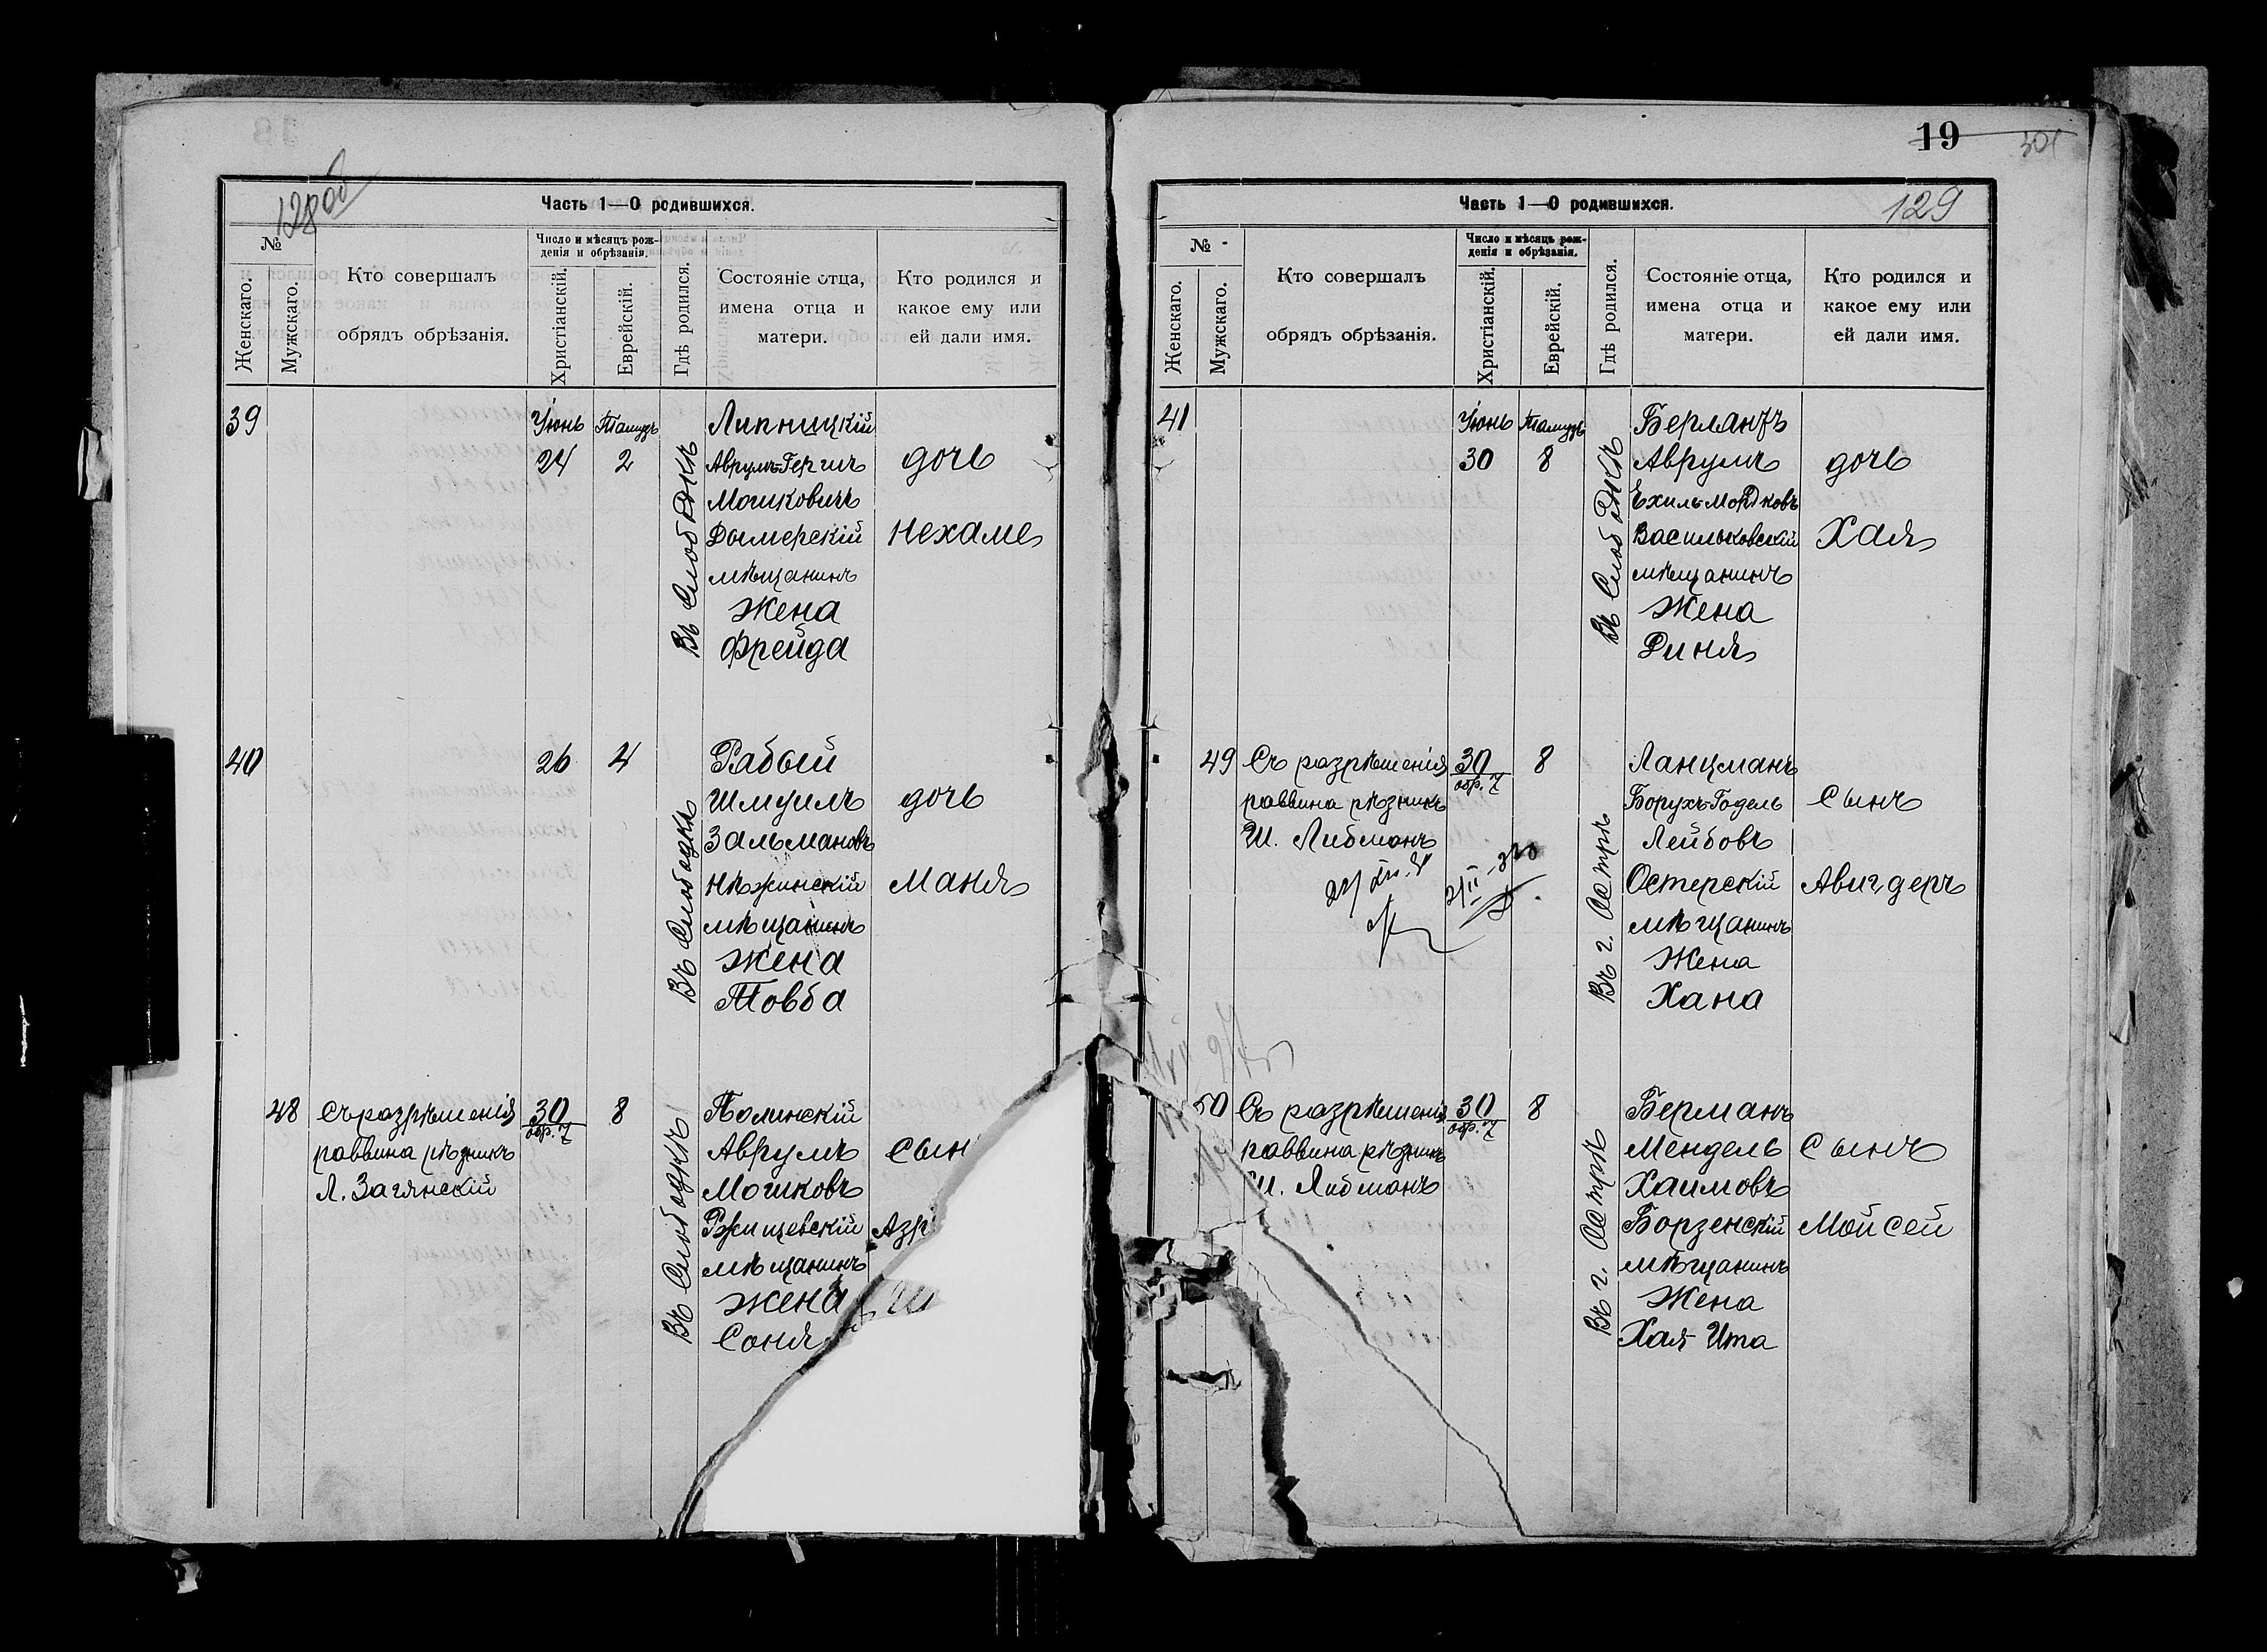 128 об
Часть 1—О родившихся.
№
Женскаго.
Мужскаго.
Кто совершалъ
обрядъ обрѣзанія.
Число и мѣсяцъ рож-
денія и обрѣзанія.
Христіанскій.
Еврейскій.
Гдѣ родился.
Состояніе отца,
имена отца и
матери.
Кто родился и
какое ему или
ей дали имя.
39
Іюнь
24
Тамузъ
2
Въ Слободкѣ
Липницкій
Аврумъ-Гершъ
Мошковичъ
Дымерскій
мѣщанинъ
Жена
Фрейда
дочь
Нехаме
40
26
4
Въ Слободкѣ
Рабый
Шмуилъ
Зальмановъ
Нѣжинскій
мѣщанинъ
Жена
Товба
дочь
Маня
48
Съ разрѣшенія
раввина рѣзникъ
Л. Загянскій
30
обр. 7
8
Въ Слободкѣ
Полинскій
Аврумъ
Мошковъ
Ржищевскій
мѣщанинъ
Жена
Соня
сын
Азр
19
301
129
Часть 1—О родившихся.
№
Женскаго.
Мужскаго.
Кто совершалъ
обрядъ обрѣзанія.
Число и мѣсяцъ рож-
денія и обрѣзанія.
Христіанскій.
Еврейскій.
Гдѣ родился.
Состояніе отца,
имена отца и
матери.
Кто родился и
какое ему или
ей дали имя.
41
Іюнь
30
Тамузъ
8
Въ Слободкѣ
Берлянтъ
Аврумъ
Ехиль Мордковъ
Васильковскій
мѣщанинъ
Жена
Риня
дочь
Хая
49
Съ разрѣшенія
раввина рѣзникъ
Ш. Либманъ
30
обр. 7
8
Въ г. Острѣ
Ланцманъ
Борухъ-Годель
Лейбовъ
Остерскій
мѣщанинъ
Жена
Хана
сынъ
Авигдеръ
50
Съ разрѣшенія
раввина рѣзникъ
Ш. Либманъ
30
обр. 7
8
Въ г. Острѣ
Берманъ
Мендель
Хаимовъ
Борзенскій
мѣщанинъ
Жена
Хая-Ита
Сынъ
Мойсей